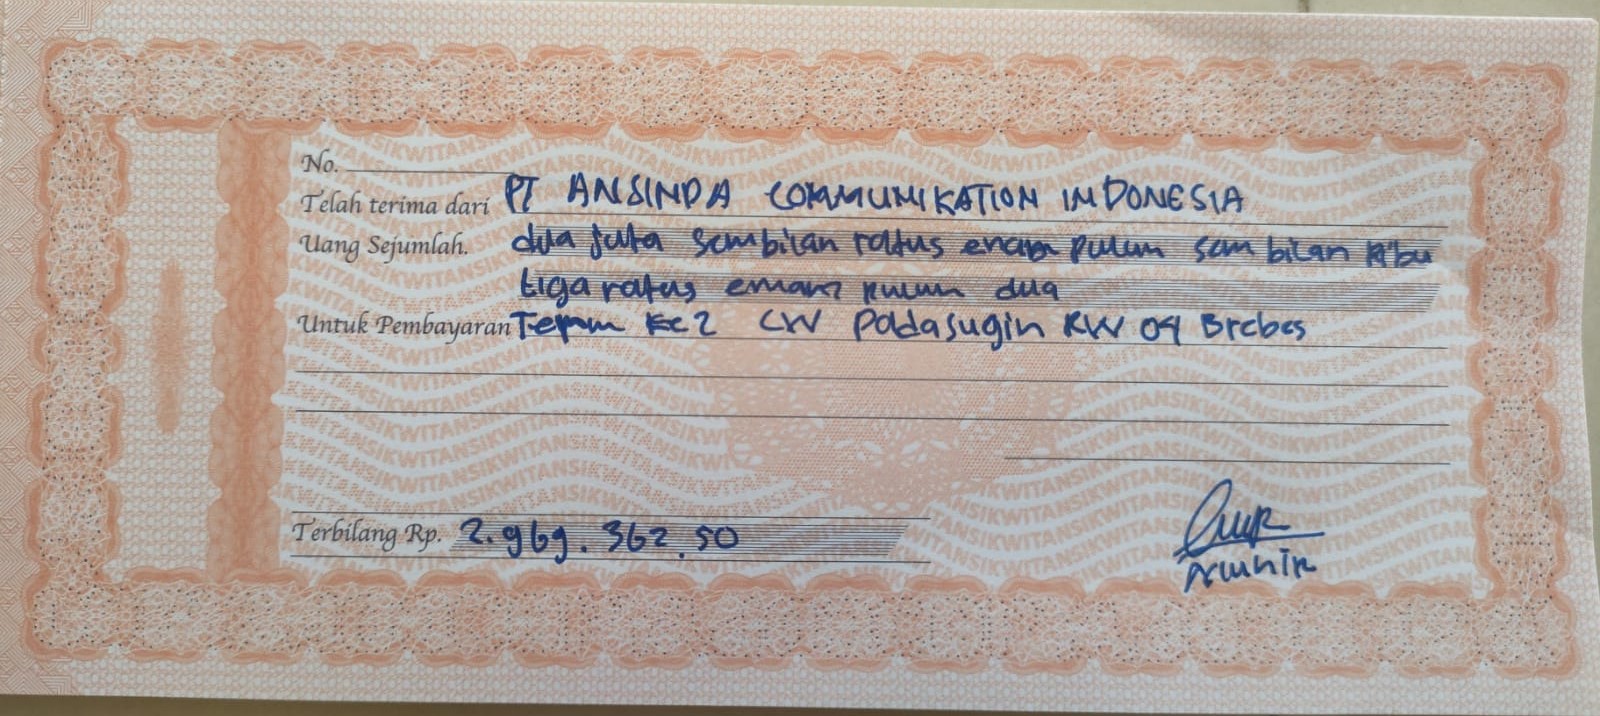 No.
Telah terima dari PT ANSINDA COMMUNIKATION INDONESIA
Uang Sejumlah. dua juta sembilan ratus enam puluh sembilan ribu
tiga ratus enam puluh dua
Untuk Pembayaran Ke 2 CW Padasugin RW 04 Brebes
Terbilang Rp. 2.969.362.50